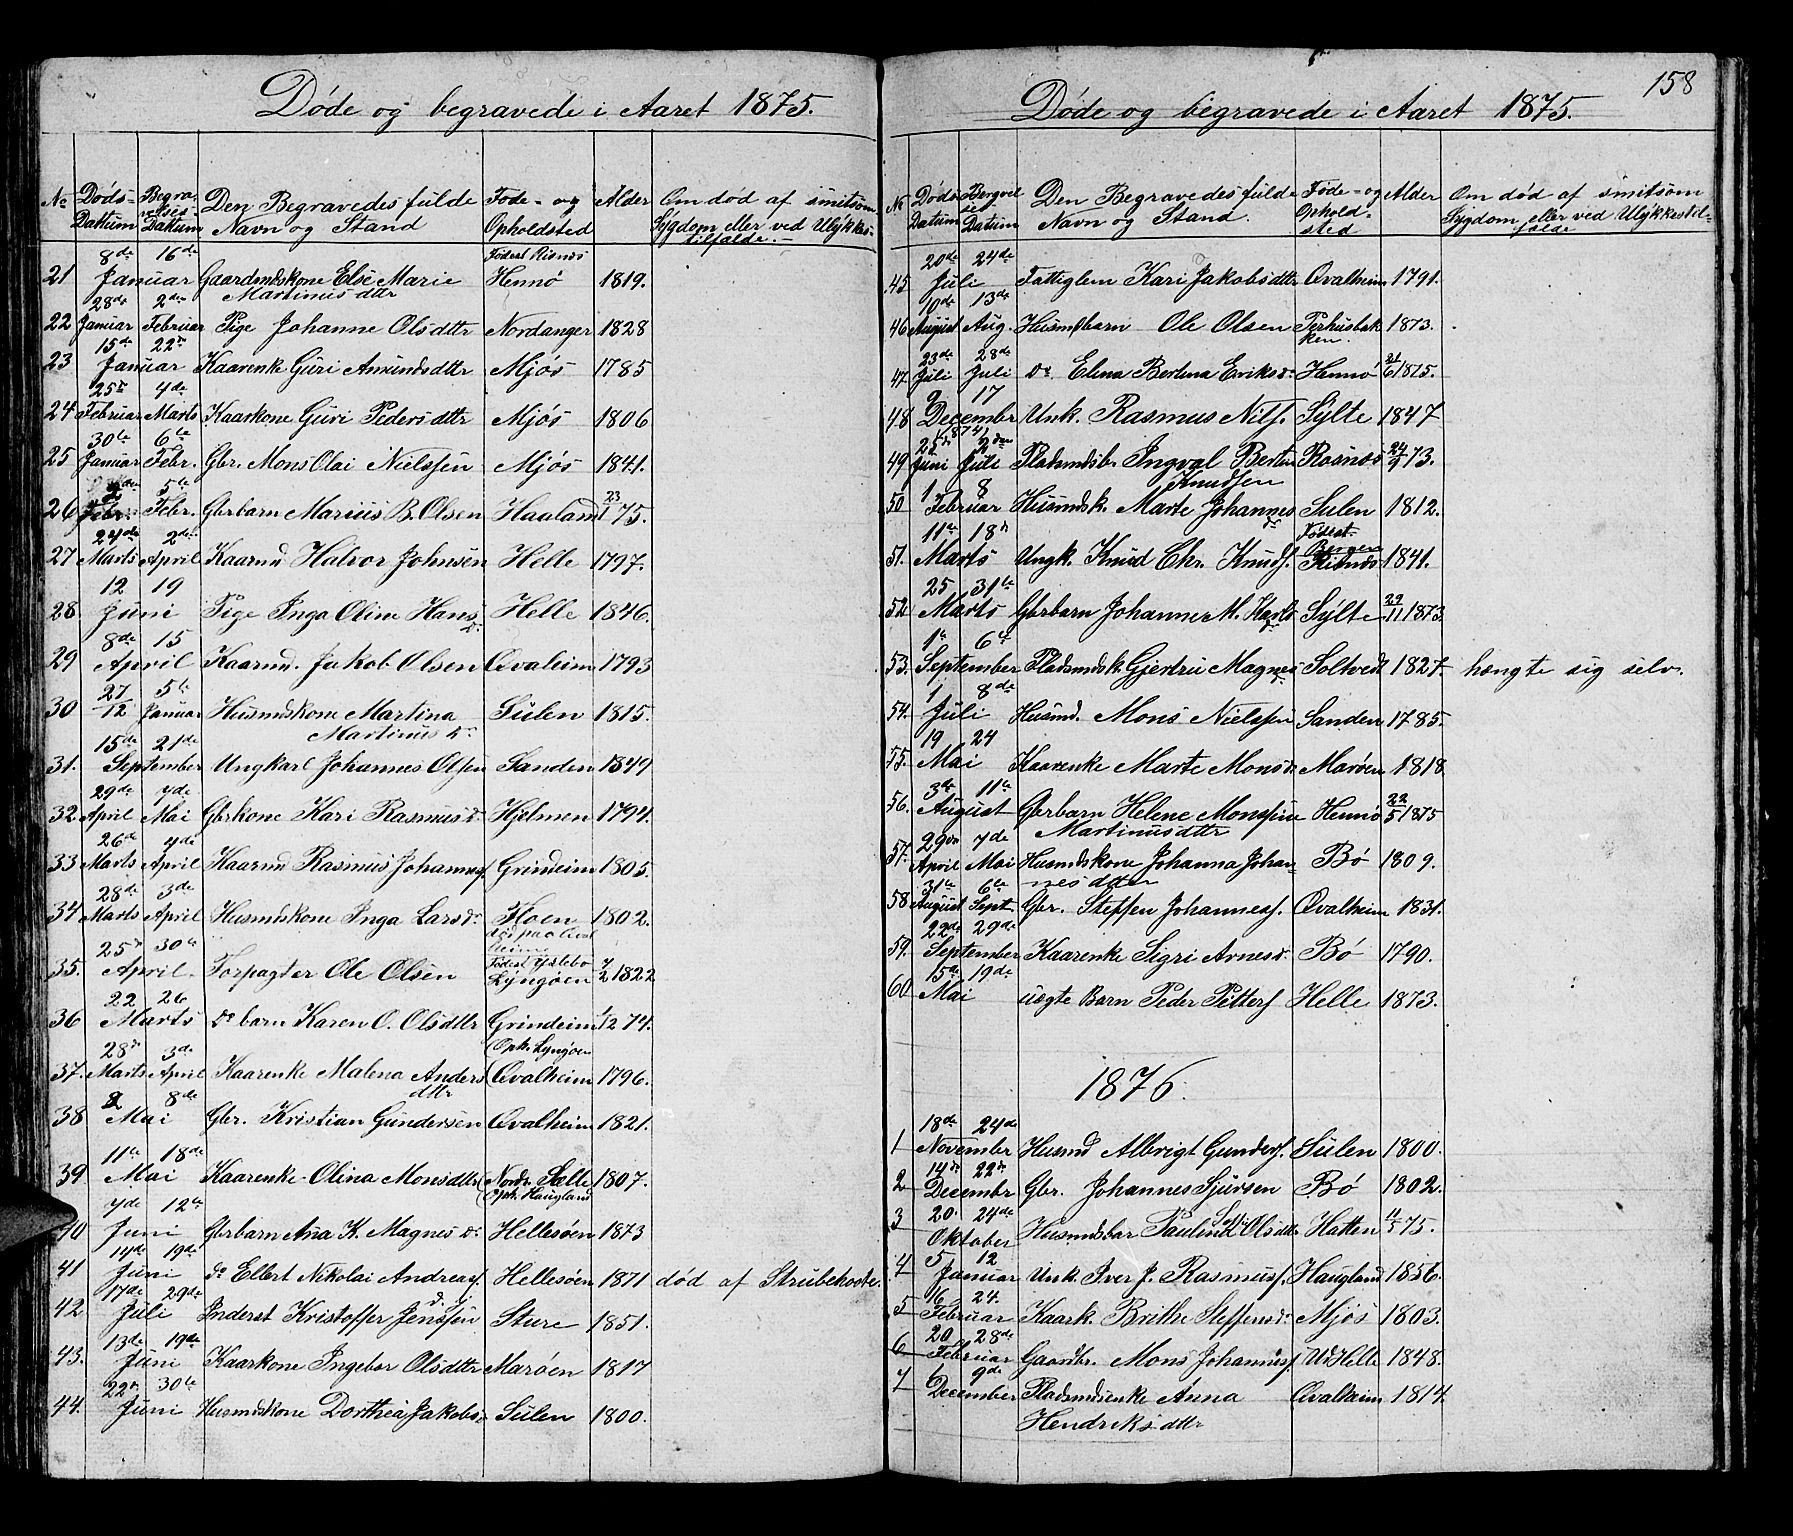 Døde og begravede i Aaret 1875.
No Døds-Dattum Begravelses-Dattum Den Begravedes fulde Navn og Stand Føde- og Opholdsted Alder Om død af smitsom Sygdom eller ved Ulykkestilfælde.
21 8de 16de Januar Gaardmdskone Else Marie Martinusdttr Fødest Risnes Hennø 1819.
22 28de Januar 2den Februar Pige Johanne Olsdttr Nordanger 1828
23 15de 22n Januar Kaarenke Guri Amundsdttr Mjøs 1785
24 25n Februar 4de Marts Kaarkone Guri Pedersdttr Mjøs 1806
25 30te Januar 6te Febr. Gbr. Mons Olai Nielssen Mjøs 1841.
26 Febr. 5te Febr. Gbrbarn Marius B. Olsen Haaland 23/1 75.
27 24de Marts 2den April Kaarmd Halvor Johnsen Helle 1797.
28. 12 19 Juni Pige Inga Oline Hansd. Helle 1846.
29 8de 15 April Kaarmd. Jakob Olsen Qvalheim 1793
30 27/12 5te Januar Husmdskone Martina Martinusdr Sulen 1815.
31. 15de 21de September Ungkarl Johannes Olsen Sanden 1847
32 29de April 7de Mai Gbrkone Kari Rasmusd. Hjelmen 1794.
33 26de Marts 4de April Kaarmd Rasmus Johannes. Grindeim 1805.
34 28de Marts 3de April Husmdskone Inga Larsdr Floen 1802.
35. 25n 30te April Forpagter Ole Olsen Lyngøen 7/2 1822
36 22 26 Marts do barn Karen O. Olsdttr Grindeim 1/12 74.
37. 28n Marts 3de April Kaarenke Malena Andersdttr (Oph. Lyngøen Qvalheim 1796.
38 2 8de Mai Gbr. Kristian Gundersen Qvalheim 1821.
39 11te 18de Mai Kaarenke Olina Monsdttr (Nordr Sælle Oph. Haugland 1807.
40 7de 12te Juni Gbrbarn Ana K. Magnesdr Hellesøen 1873
41 14de 19de Juni do Ellert Nikolai Andreas. Hellesøen 1871 død af Strubehoste.
42. 17de 29de Juli Inderst Kristoffer Jenssen Sture 1851.
43. 13de 19de Juni Kaarkone Ingebor Olsdttr Marøen 1817
44. 22n 30te Juni Husmdskone Dorthea Jakobsd. Sulen 1800.
158
Døde og begravede i Aaret 1875.
No Døds Datum Begravelse Datum Den Begravedes fulde Navn og Stand. Føde- og Opholdsted Alder Om død af smitsom Sygdom eller ved Ulykkestilfælde
45 20de 24de Juli Fattiglem Kari Jakobsdttr Qvalheim 1791.
46 10de August 13de Aug. Husmdbarn Ole Olsen Perhusbakken. 1873.
47 23de Juli 28de Juli do Elina Bertina Eriksdr Hennø 21/6 1875.
48 9 17 Decembr (1874) Unk. Rasmus Nils. Sylte 1847
49 25de Juni 2den Juli Pladsmdsb. Ingval Bertin Knudsen Rosnes 24/9 73.
50 1 8 Februar Husmdsk. Marte Johannesdr Sulen 1812.
51. 11te 18n Marts Ungk. Knud Chr. Knuds. Fødest. Bergen Risnes 1841.
52 25 31te Marts Gbrbarn Johanne M. Karlsdr Sylte 29/11 1873.
53. 1te 6te September Pladsmdsk. Gjertru Magnesd. Soltvedt 1827 hængte sig selv.
54. 1 8de Juli Husmd. Mons Nielssen Sanden 1785.
55. 19 24 Mai Kaarenke Marte Monsd. Marøen 1818
56. 3de 11te August Gbrbarn Helene Monssine Martinusdttr Hennø 22/5 1875
57. 29de April 7de Mai Husmdskone Johanna Johannesdtter Bø 1809.
58 31te August 6te Sept. Gbr. Steffen Johannes. Qvalheim 1831.
59. 22de 29de September Kaarenke Sigri Arnesd. Bø 1790.
60 15de 19de Mai uægte Barn Peder Petters Helle 1873.
1876.
1 18de 24de November Husmd Albrigt Gunders. Sulen 1800.
2 14de 22n Decembr Gbr. Johannes Sjursen Bø 1802.
3 20. 24de Oktober Husmdsbar Pauline Olsdttr Hatten 11/5 75.
4 5 12 Januar Unk. Iver J. Rasmus. Haugland 1856.
5 16 24. Februar Kaark. Brithe Steffensd. Mjøs 1803.
6 20 28de Februar Gaardbr. Mons Johannes. Ud Helle 1848.
7 2 9de December Pladsmdsenke Anna Hendriksdttr Qvalheim 1814.